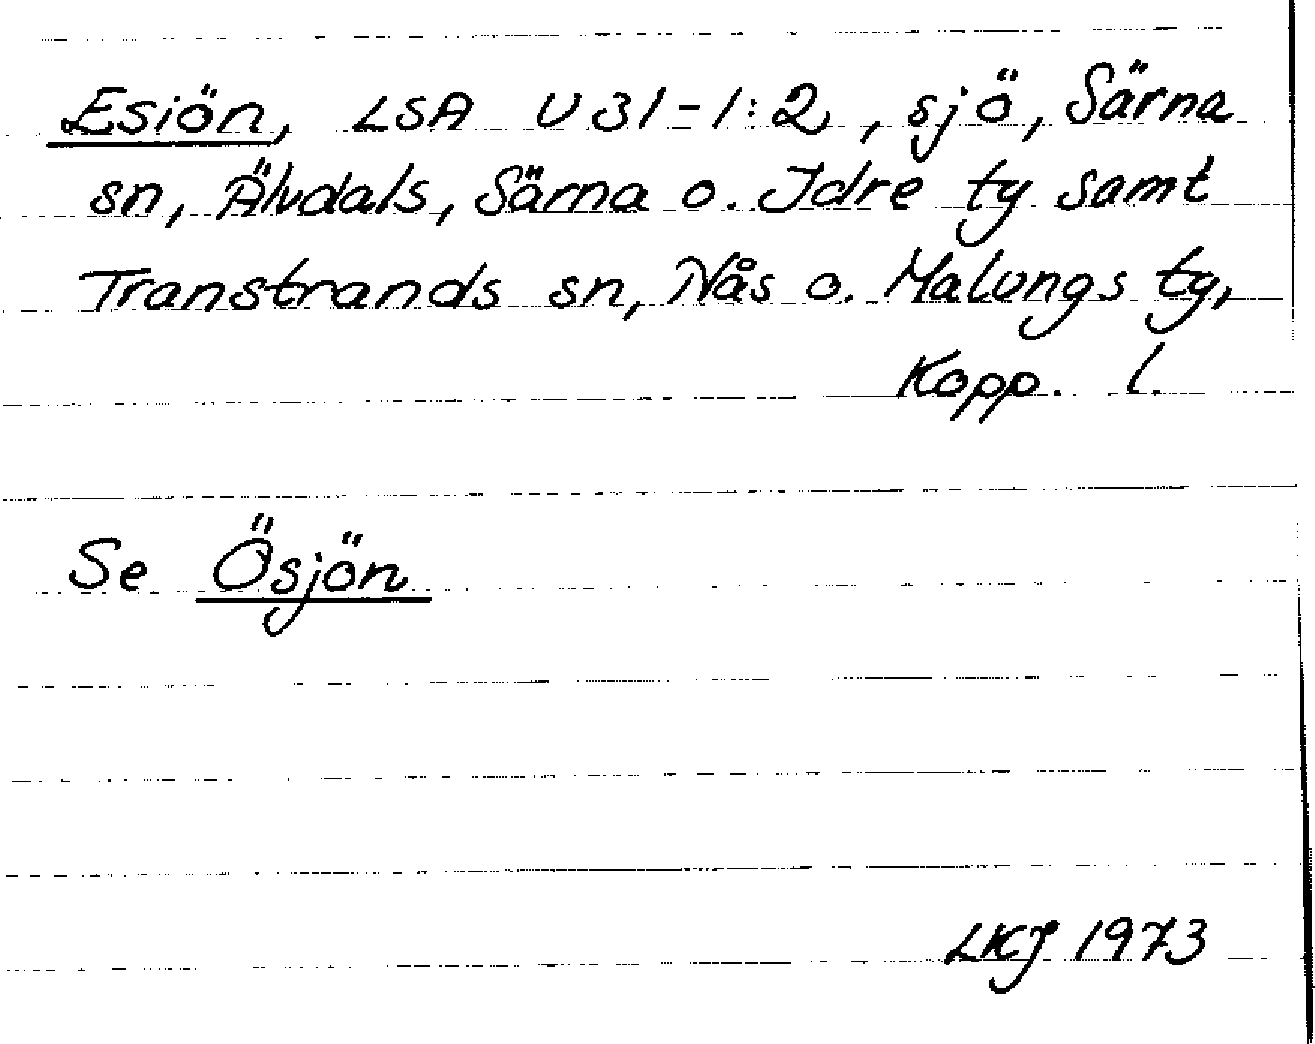 Esiön, LSA U31-1:2, sjö, Särna
sn, Älvdals, Särna o. Idre tg samt
Transtrands sn, Nås o. Malungs tg,
Kopp. l.
Se Ösjön
LKJ 1973